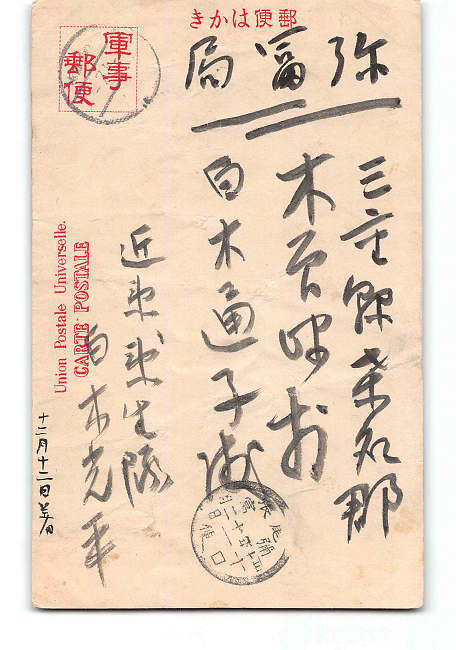 郵便はかき
軍事
郵便
弥富局
三重縣桑名郡
木曽岬村
白木通子
近衛衛生隊
白木光平
十二月十二日
Union Postale Universelle.
CARTE POSTALE